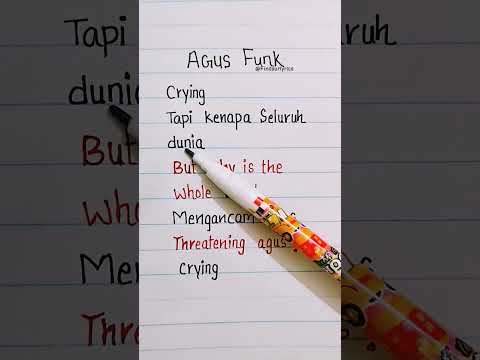 Agus Funk
@Findourlyrics
Crying
Tapi kenapa Seluruh
dunia
But why is the
Whole
Mengancam
Threatening agus
Crying